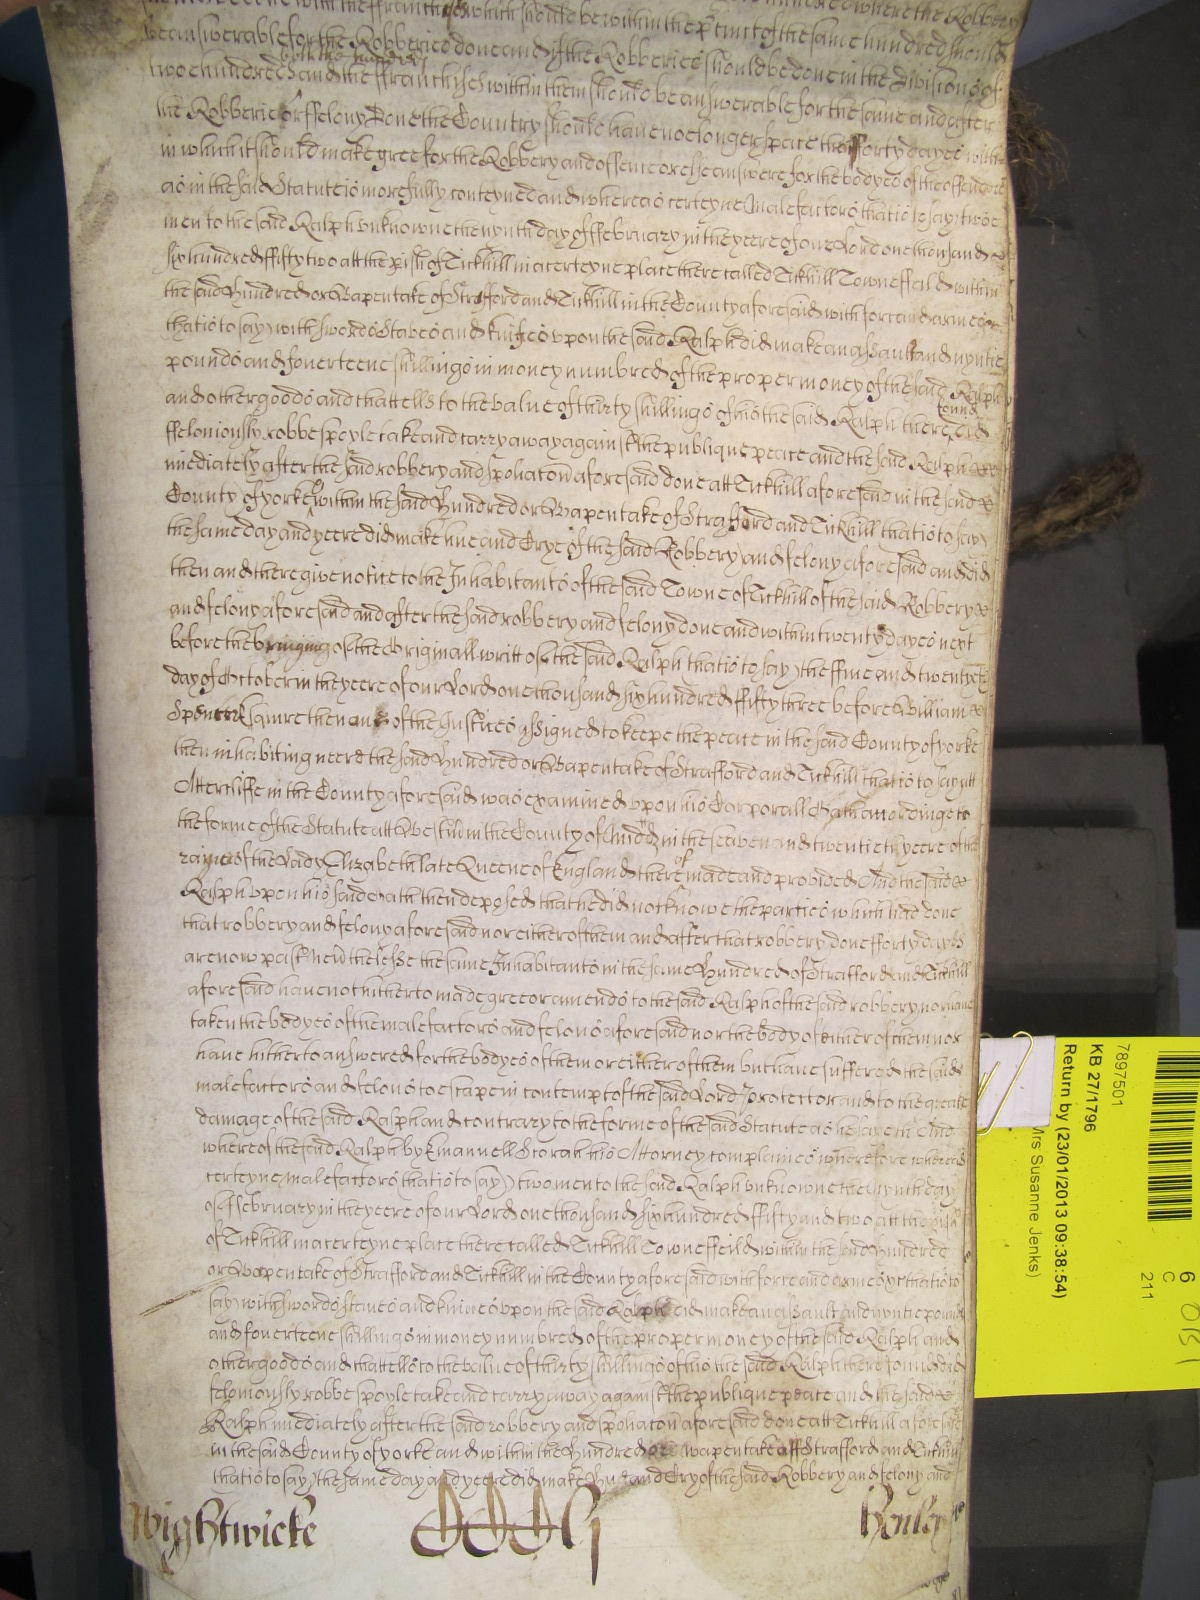 with the ffranchises which should be within the precinct of the same hundred where the Robbery
be answerable for the Robberies done and if the Robberies should be done in the Division of
both the hundreds
twoe hundreds and the ffranchises within them should be answerable for the same and after
the Robberie or ffelony Done the Country should have noe longer space then fforty dayes within
in which it should make gree for the Robbery and offence or else answere for the bodyes of the offenders
as in the said Statute is more fully conteyned and whereas certeyne Malefactors that is to say twoe
men to the said Ralph unknowne the nynth day of ffebruary in the yeere of our Lord one thousand
six hundred ffifty two att the pish of Tickhill in a certeyne place there called Tickhill Towne ffeild within
the said Hundred or Wapentake of Strafford and Tickhill in the County aforesaid with force and armes
that is to say with swords staves and knifes upon the said Ralph did make an assault and nyntie
pounds and fouerteene shillings in money numbred of the proper money of the said Ralph
and other goods and chattells to the value of thirty shillings of his the said Ralph there did
found
ffeloniously robbe spoyle take and carry away against the publique peace and the said Ralph
imediately after the said robbery and spoliacon aforesaid done att Tickhill aforesaid in the said
County of yorke within the said Hundred or Wapentake of Strafford and Tickhill that is to say
the same day and yeere did make hue and Crye of the said Robbery and felony aforesaid and did
then and there give notice to the Inhabitants of the said Towne of Tickhill of the said Robbery
and felony aforesaid and after the said robbery and felony done and within twenty dayes next
before the bringing of the Originall writt of the said Ralph that is to say the ffive and twentyeth
day of October in the yeere of our Lord one thousand six hundred ffifty three before William
Spencer Esquire then one of the Justices assigned to keepe the peace in the said County of yorke
then inhabiting neere the said Hundred or Wapentake of Strafford and Tickhill that is to say att
Attercliffe in the County aforesaid was examined upon his Corporall Oath accordinge to
the forme of the Statute att Westm in the County of Midd in the seaven and twentieth yeere of the
raigne of the Lady Elizabeth late Queene of England there made and provided And the said
of
Ralph upon his said oath then deposed that he did not know the parties which had done
that robbery and felony aforesaid nor either of them and after that robbery done fforty dayes
are now past Neverthelesse the same Inhabitants in the same Hundred of Strafford and Tickhill
aforesaid have not hitherto made gree or amends to the said Ralph of the said robbery nor have
taken the bodyes of the malefactors and felons aforesaid nor the body of either of them nor
have hitherto answered for the bodyes of them or either of them but have suffered the said
malefactors and felons to escape in contempt of the said Lord Protector and to the greate
damage of the said Ralph and contrary to the forme of the said Statute as he sayeth And
whereof the said Ralph by Emanuell Storah his Attorney complaines wherefore whereas
certeyne malefactors (that is to say) two men to the said Ralph unknowne the nynth day
of ffebruary in the yeere of our Lord one thousand six hundred ffifty and two att the pish
of Tickhill in a certeyne place there called Tickhill Towne ffeild within the said Hundred
or Wapentake of Strafford and Tickhill in the County aforesaid with force and armes that is to
say with swords staves and knives upon the said Ralph did make an assault and nyntie pounds
and fouerteene shillings in money numbred of the proper money of the said Ralph and
other goods and chattells to the value of thirty shillings of his the said Ralph there found did
feloniously robbe spoyle take and carry away against the publique peace and the said
Ralph imediately after the said robbery and spoliacon aforesaid done att Tickhill aforesaid
in the said County of yorke and within the Hundred or wapentake of Strafford and Tickhill
that is to say the same day and yeere did make Hue and Cry of the said Robbery and felony and
Wightwicke
Henley
7897501
KB 27/1796
Return by (23/01/2013 09:38:54)
Mrs Susanne Jenks)
6
C
211